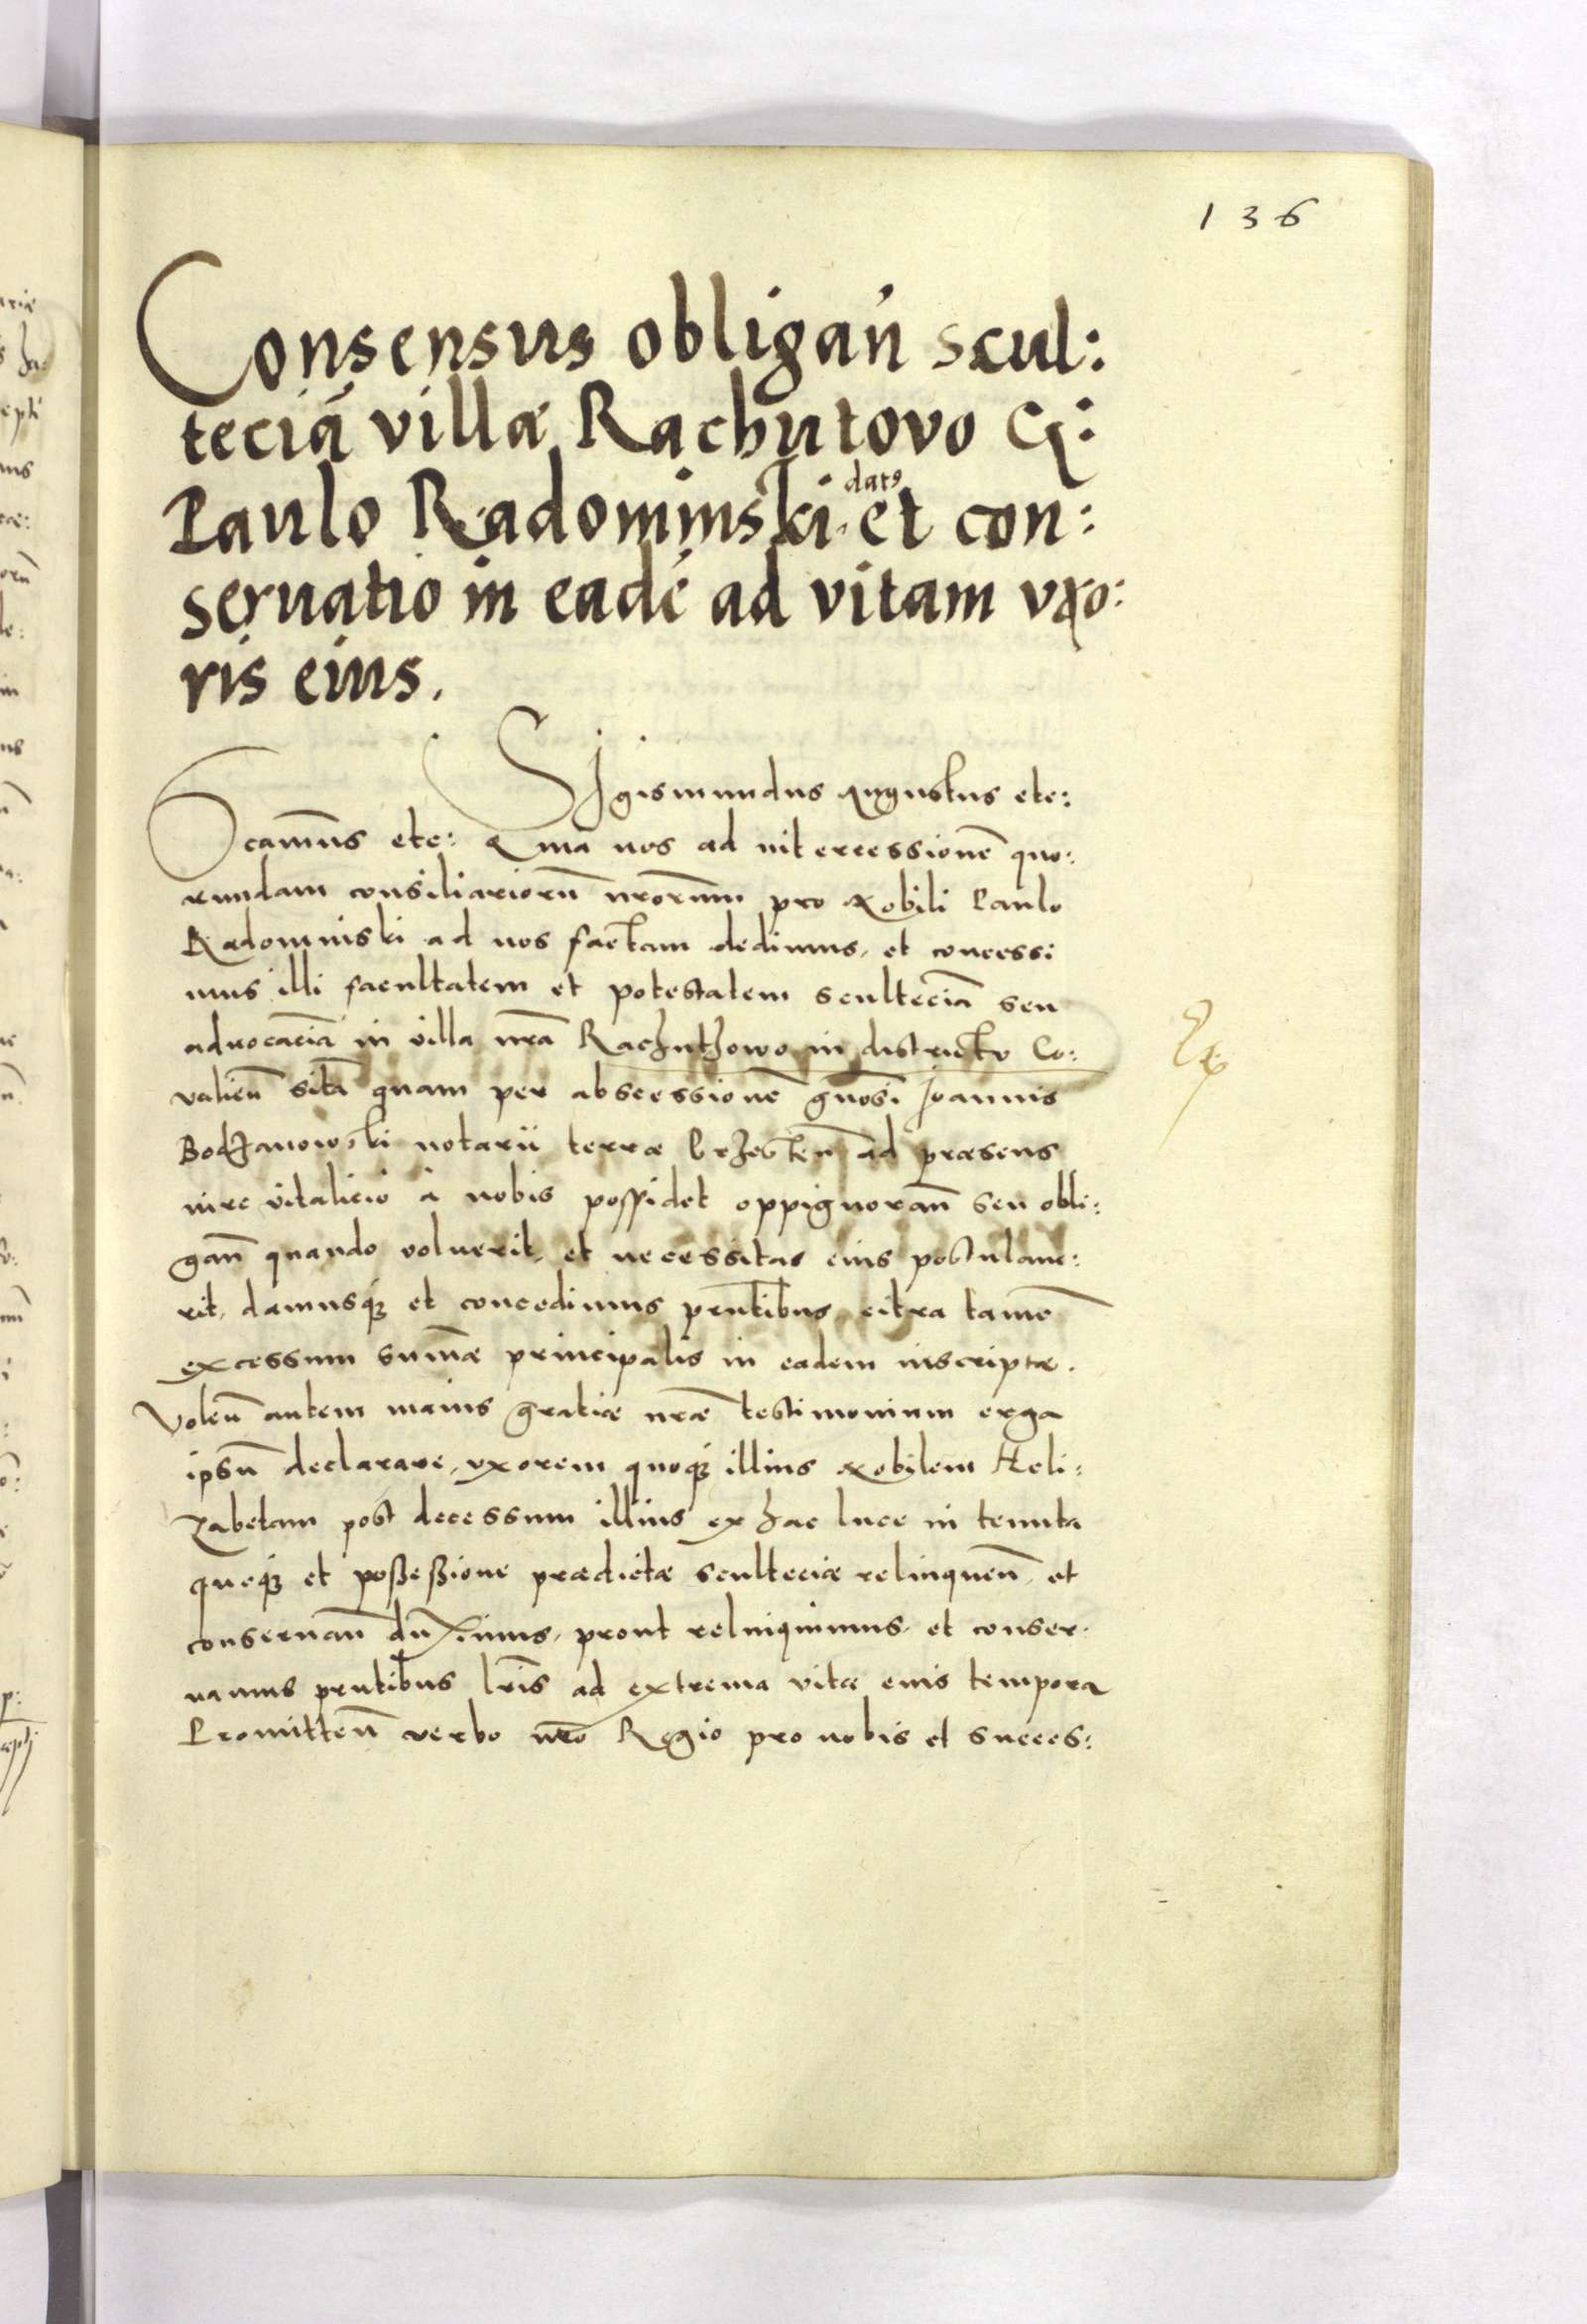 136
Consensus obligan̄ scul:
teciā villæ Rachutovo G:
Paulo Radominski dat9 et con:
seruatio in eadē ad vitam vxo:
ris eius.
Sigismundus Augustus etc:
Significamus etc: Quia nos ad intercessionē quo:
rundam consiliariorū nrorum pro Nobili Paulo
Radominski ad nos factam dedimus, et concessi
mus illi facultatem et potestatem sculteciā seu
aduocaciā in villa nrā Rachuthowo in districtu Co:
valien̄ sitā quam per abscessionē gnosi Joannis
Bodzanowski notarii terræ Brzesten̄ ad præsens
iure vitalicio à nobis possidet oppignoran̄ seu obli:
gan̄ quando voluerit, et necessitas eius postulaue:
rit, damusq3 et concedimus prntibus, citra tamē
excessum sum̄æ principalis in eadem inscriptæ.
Volen̄ autem maius gratiæ nræ testimonium erga
ipsū declarare, vxorem quoq3 illius Nobilem Heli:
zabetam post decessum illius ex hac luce in tenuta
queq3 et possessione prædictæ scultecie relinquen̄, et
conseruan̄ duximus, prout relinquimus, et conser:
uamus prntibus lris ad extrema vitæ eius tempora
Promitten̄ verbo nro Regio pro nobis et succes: